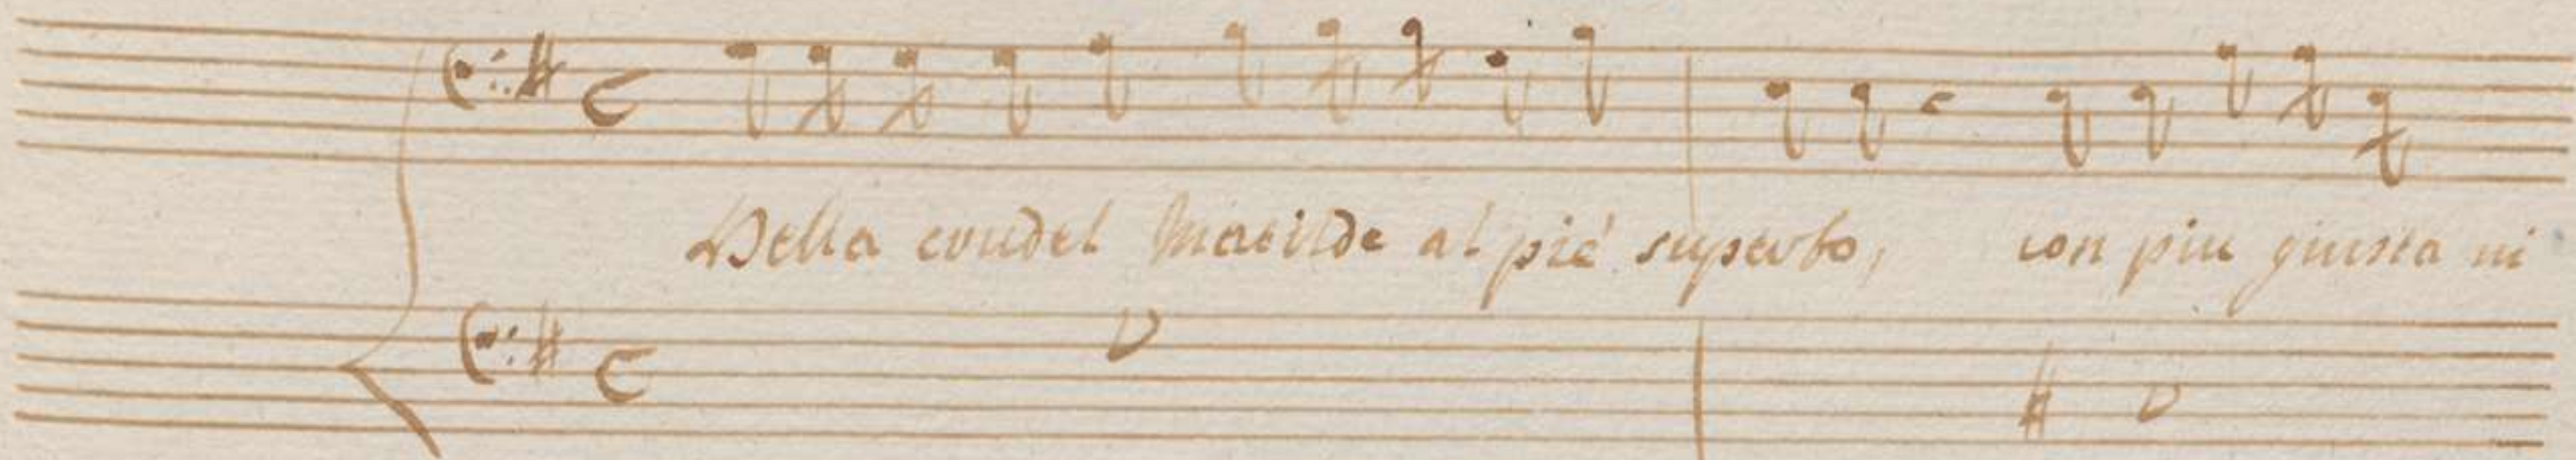 Della crudel Matilde al pié superbo, con piu giusta ni